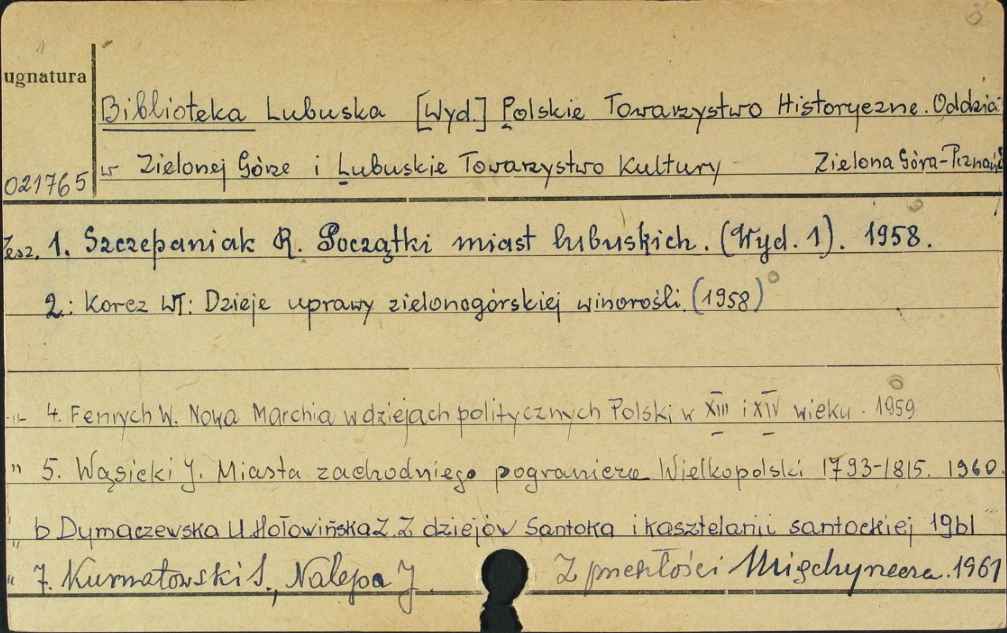 ugnatura
Biblioteka Lubuska [Wyd.] Polskie Towarzystwo Historyczne. Oddzia
w Zielonej Górze i Lubuskie Towarzystwo Kultury Zielona Góra-Poznań
021765
Zesz. 1. Szczepaniak R. Początki miast lubuskich. (Wyd. 1). 1958.
2: Korcz Wł: Dzieje uprawy zielonogórskiej winorośli. (1958)
-"- 4. Fenrych W. Nowa Marchia w dziejach politycznych Polski w XIII i XIV wieku. 1959
" 5. Wąsicki J. Miasta zachodniego pogranicza Wielkopolski 1793-1815. 1960.
" 6 Dymaczewska U. Hołowińska Z. Z dziejów Santoka i kasztelanii santockiej 1961
" 7. Kurnatowski S., Nalepa J. Z przeszłości Międzyrzecza. 1961